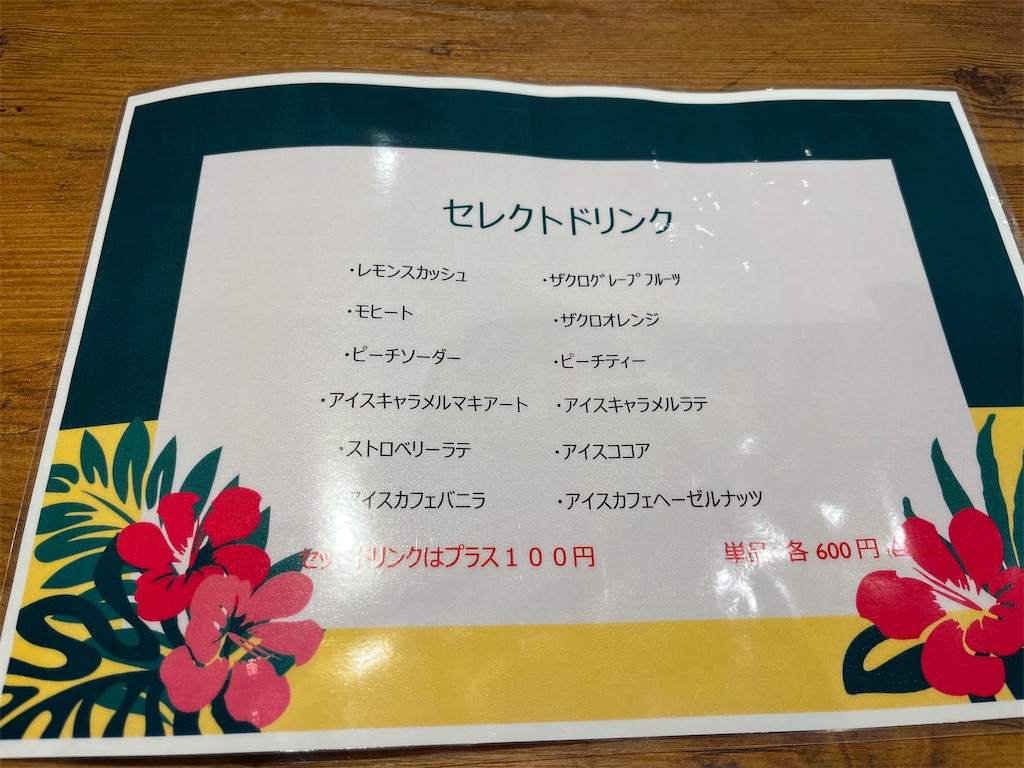 セレクトドリンク
・レモンスカッシュ ・ザクログレープフルーツ
・モヒート ・ザクロオレンジ
・ピーチソーダー ・ピーチティー
・アイスキャラメルマキアート ・アイスキャラメルラテ
・ストロベリーラテ ・アイスココア
アイスカフェバニラ ・アイスカフェヘーゼルナッツ
セットドリンクはプラス１００円 単品 各 600 円